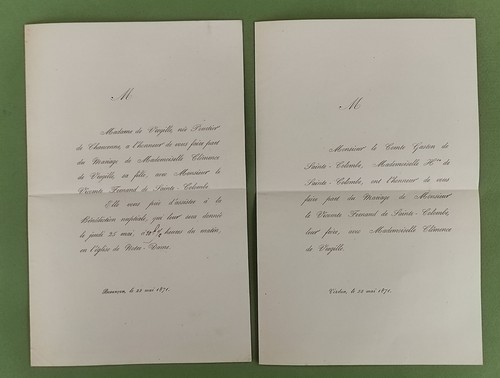 M
Madame de Vregille, née Pourtier
de Chaucenne, a l'honneur de vous faire part
du Mariage de Mademoiselle Clémence
de Vregille, sa fille, avec Monsieur le
Vicomte Fernand de Sainte-Colombe.
Elle vous prie d'assister à la
Bénédiction nuptiale, qui leur sera donnée
le jeudi 25 mai, à heures du matin,
en l'église de Notre-Dame.
Besançon, le 22 mai 1871.
M
Monsieur le Comte Gaston de
Sainte-Colombe, Mademoiselle
Sainte-Colombe, ont l'honneur de vous
faire part du Mariage de Monsieur
le Vicomte Fernand de Sainte-Colombe,
leur frère, avec Mademoiselle Clémence
de Vregille.
le 22 mai 1871.